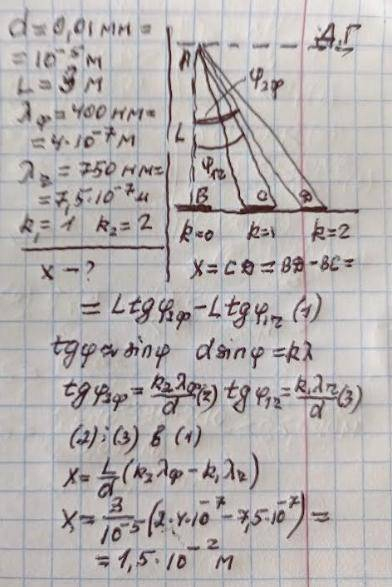 d = 0,01 мм =
= 10⁻⁵ м
L = 3 м
λф = 400 нм =
= 4·10⁻⁷ м
λ = 750 нм =
= 7,5·10⁻⁷ м
k₁ = 1 k₂ = 2
x – ?
Д.Г
A
φ2ф
L
φ1г
B C D
k=0 k=1 k=2
x = CD = BD – BC =
= L tg φ2ф – L tg φ1г (1)
tgφ ≈ sinφ d sinφ = kλ
tgφ2ф = k₂λф/d (2) tgφ1г = k₁λг/d (3)
(2) i (3) в (1)
x = L/d (k₂λф – k₁λг)
x = 3/10⁻⁵ (2·4·10⁻⁷ – 7,5·10⁻⁷) =
= 1,5·10⁻² м